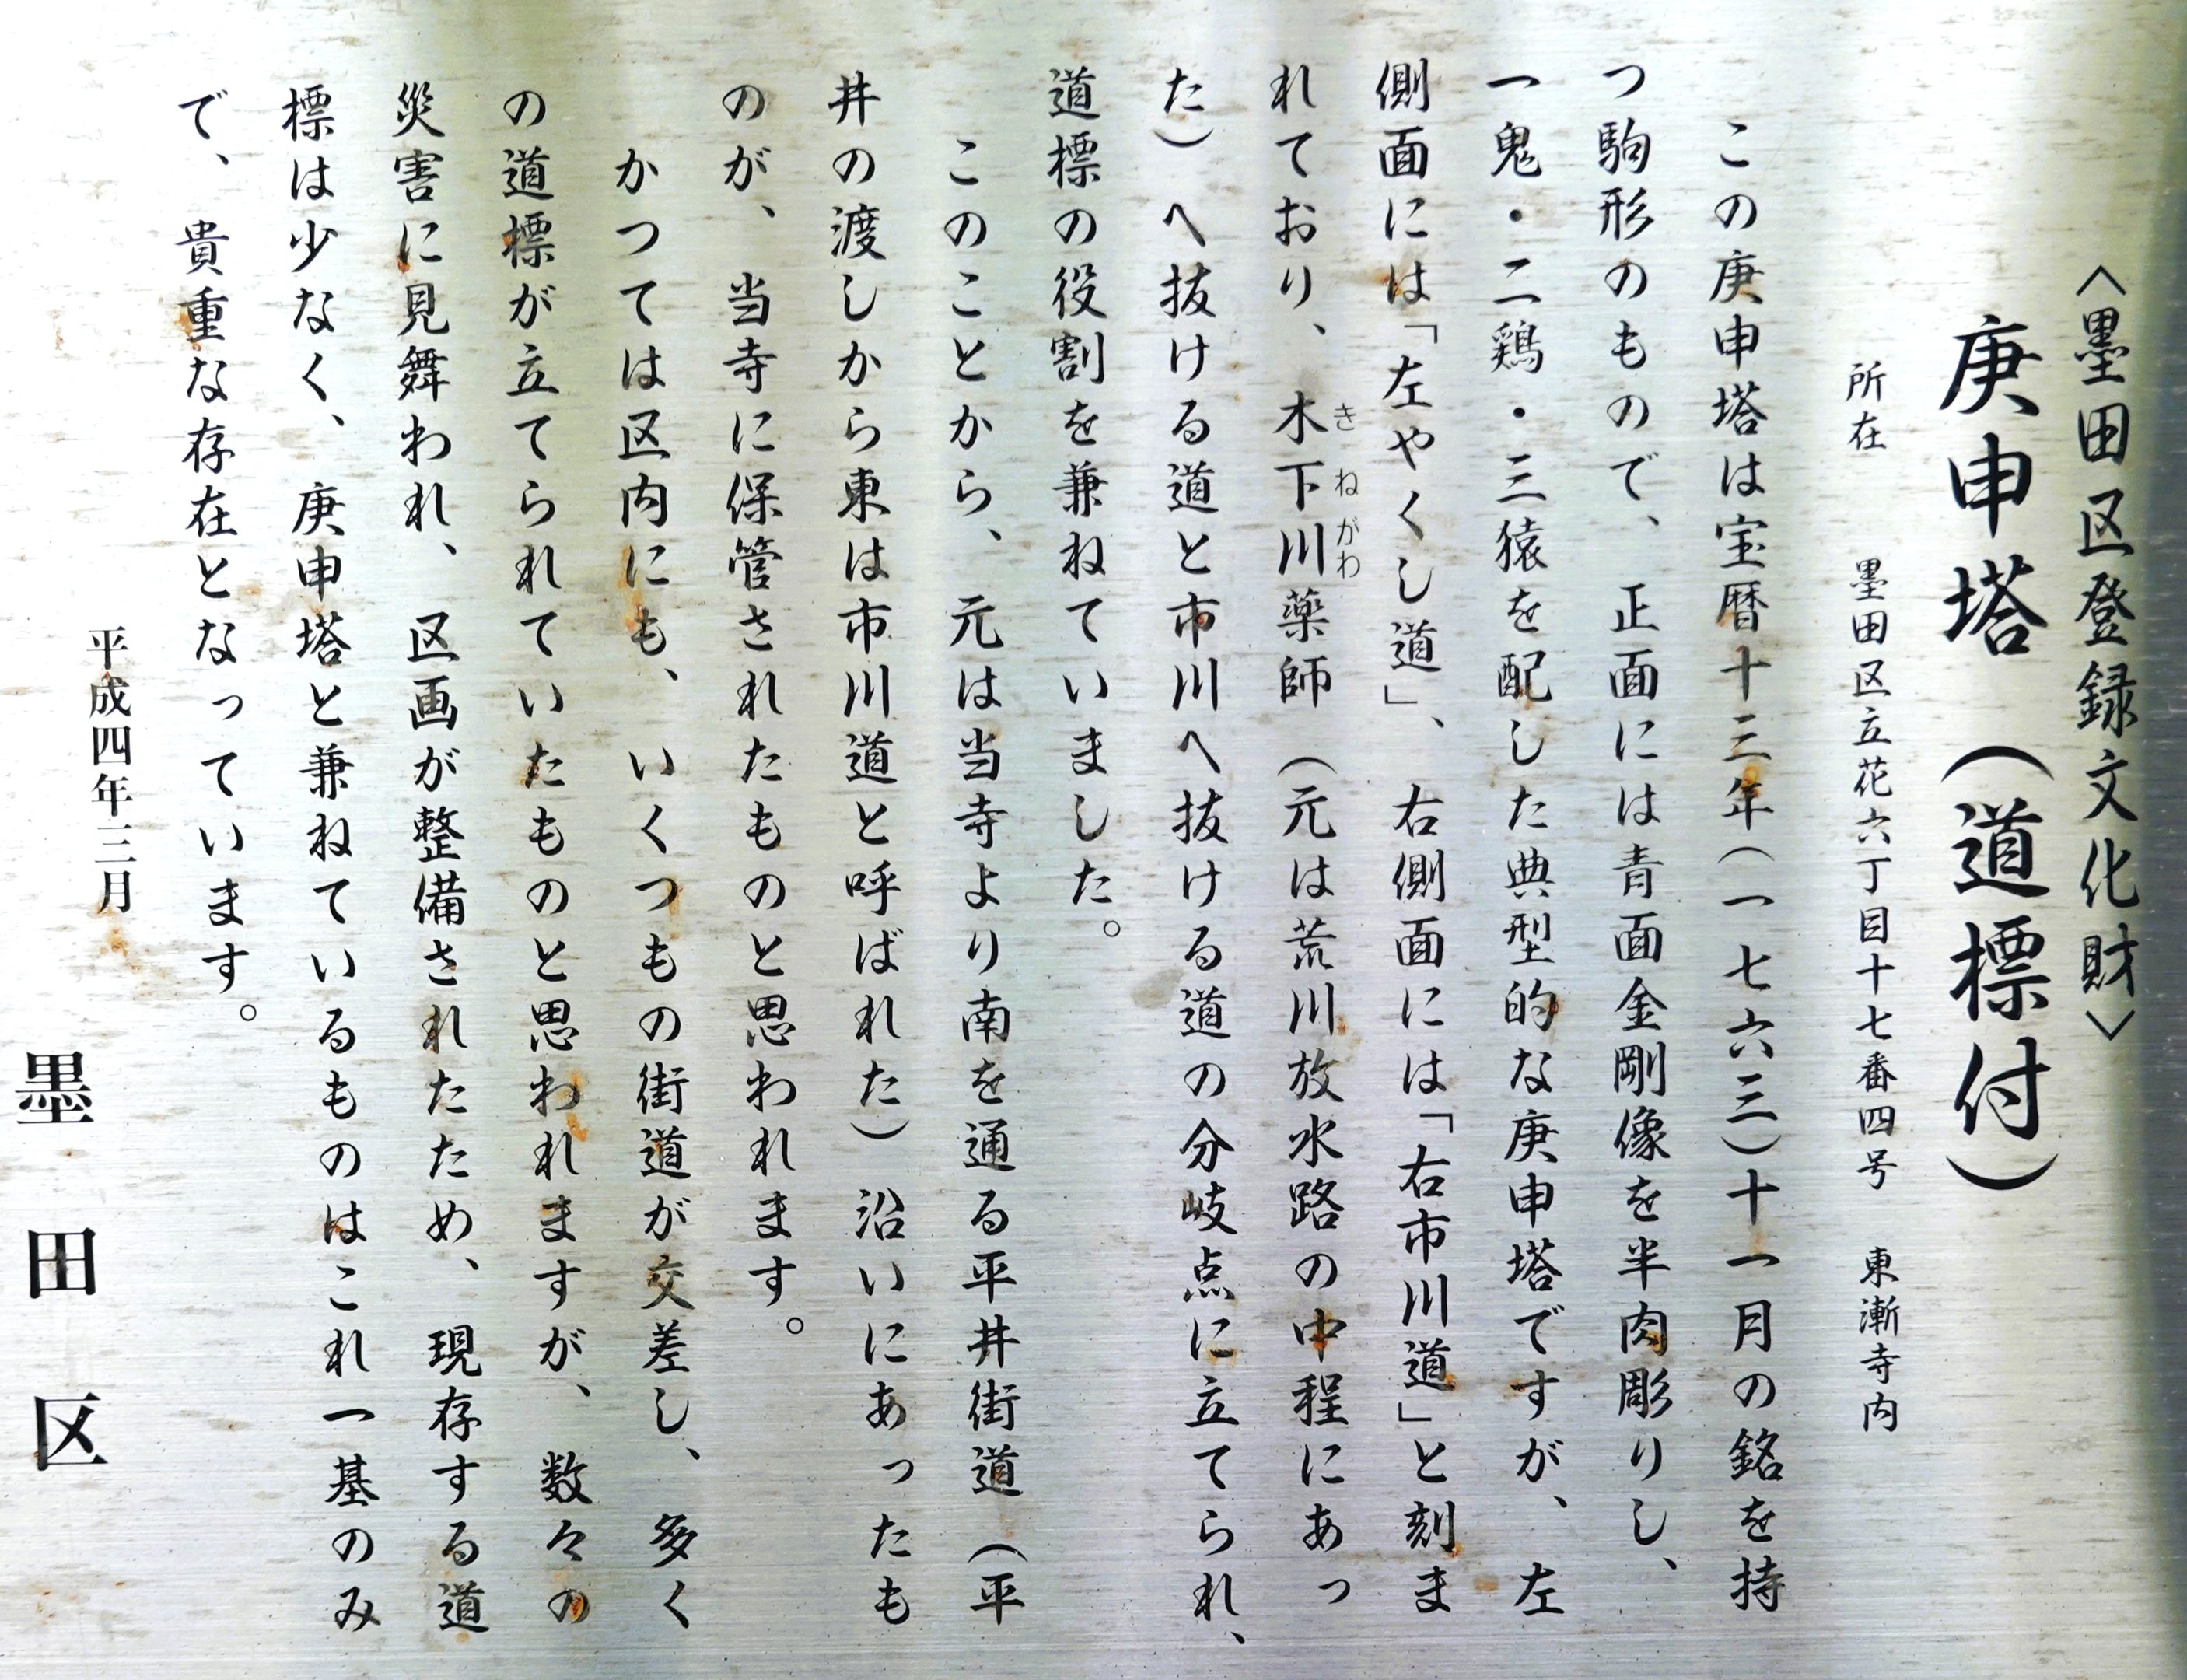 〈墨田区登録文化財〉
庚申塔（道標付）
所在　墨田区立花六丁目十七番四号　東漸寺内
この庚申塔は宝暦十三年（一七六三）十一月の銘を持
つ駒形のもので、正面には青面金剛像を半肉彫りし、
一鬼・二鶏・三猿を配した典型的な庚申塔ですが、左
側面には「左やくし道」、右側面には「右市川道」と刻ま
れており、木下川薬師（元は荒川放水路の中程にあっ
きねがわ
た）へ抜ける道と市川へ抜ける道の分岐点に立てられ、
道標の役割を兼ねていました。
このことから、元は当寺より南を通る平井街道（平
井の渡しから東は市川道と呼ばれた）沿いにあったも
のが、当寺に保管されたものと思われます。
かつては区内にも、いくつもの街道が交差し、多く
の道標が立てられていたものと思われますが、数々の
災害に見舞われ、区画が整備されたため、現存する道
標は少なく、庚申塔と兼ねているものはこれ一基のみ
で、貴重な存在となっています。
平成四年三月
墨田区